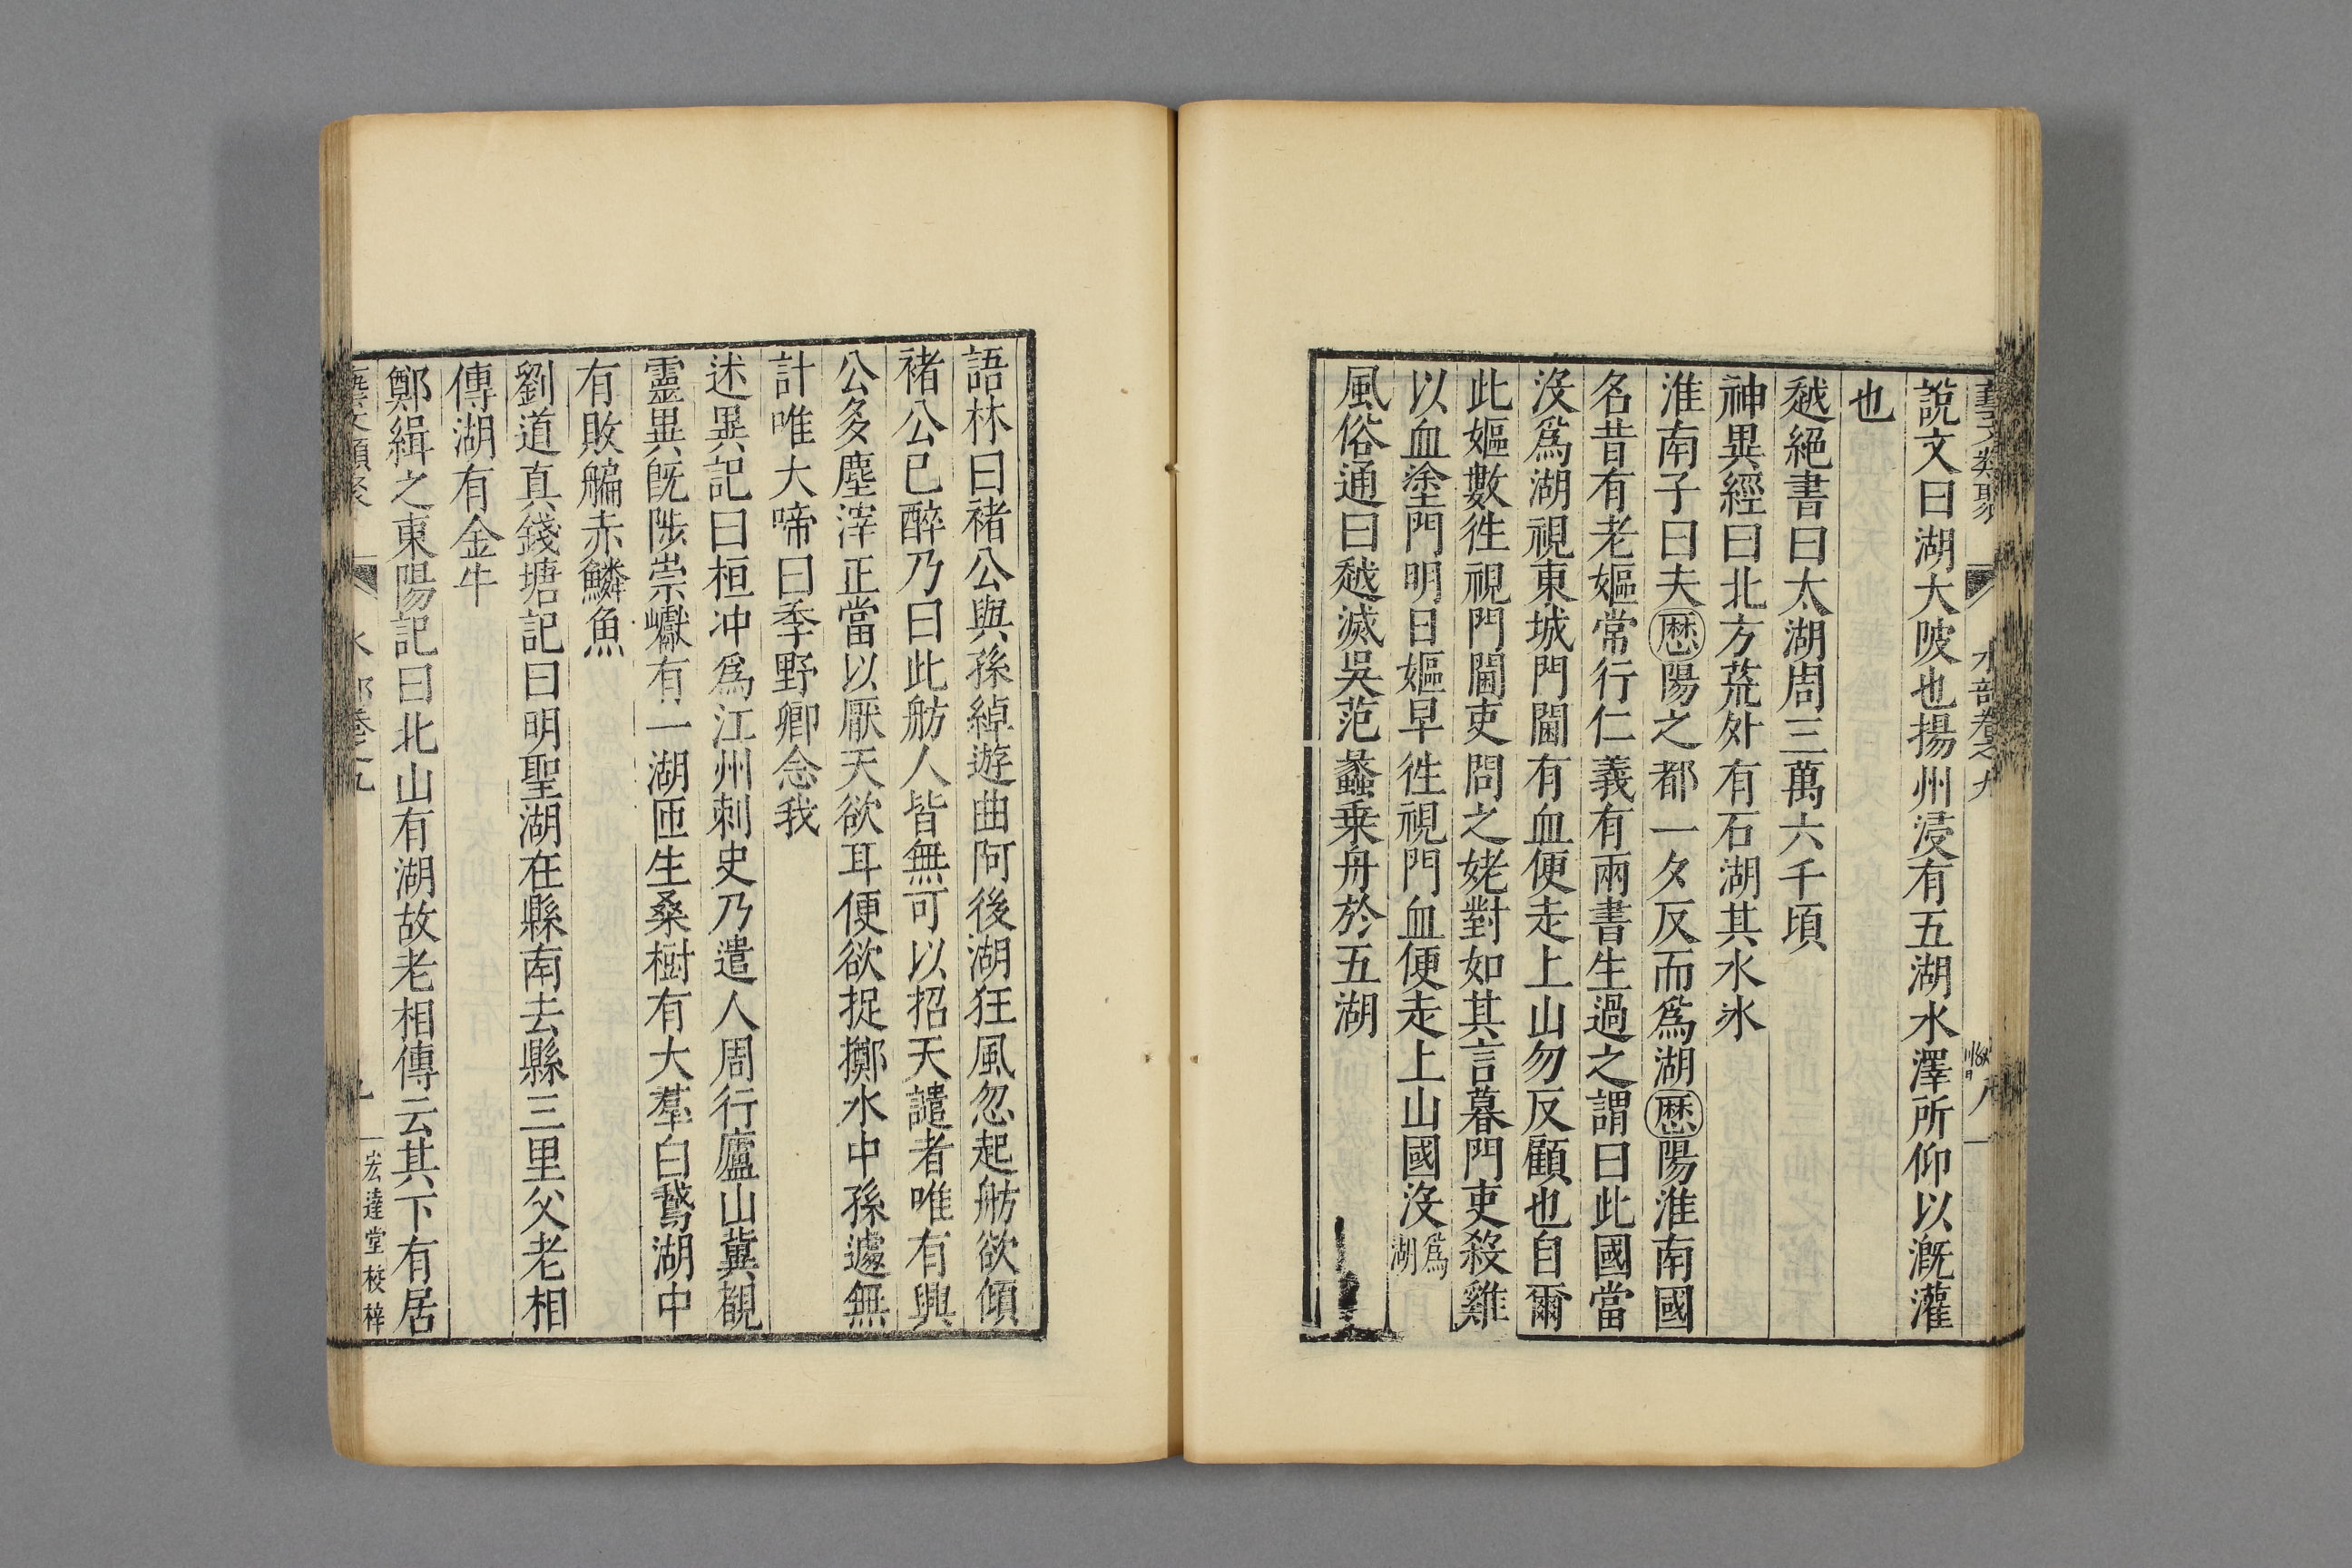 說文曰湖大陂也揚州浸有五湖水澤所仰以溉灌
也
越絕書曰太湖周三萬六千頃
神異經曰北方荒外有石湖其水氷
淮南子曰夫歷陽之都一夕反而爲湖歷陽淮南國
名昔有老嫗常行仁義有兩書生過之謂曰此國當
沒爲湖視東城門閫有血便走上山勿反顧也自爾
此嫗數徃視門閫吏問之姥對如其言暮門吏殺雞
以血塗門明日嫗早徃視門血便走上山國沒爲湖
風俗通曰越滅吳范蠡乗舟於五湖
語林曰褚公與孫綽遊曲阿後湖狂風忽起舫欲傾
褚公已醉乃曰此舫人皆無可以招天譴者唯有興
公多塵滓正當以厭天欲耳便欲捉擲水中孫遽無
計唯大啼曰季野卿念我
述異記曰桓冲爲江州刺史乃遣人周行廬山冀覩
靈異旣陟崇巘有一湖匝生桑樹有大羣白鵞湖中
有敗艑赤鱗魚
劉道真錢塘記曰明聖湖在縣南去縣三里父老相
傳湖有金牛
鄭緝之東陽記曰北山有湖故老相傳云其下有居
宏達堂校梓